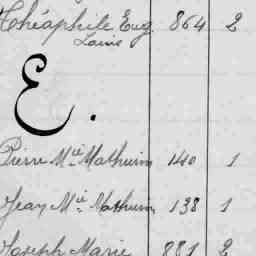 Théophile Eug. 864 2
Louis
E.
Pierre Mie Mathurin 140 1
Jean Mie Mathurin 138 1
Joseph Marie 881 2